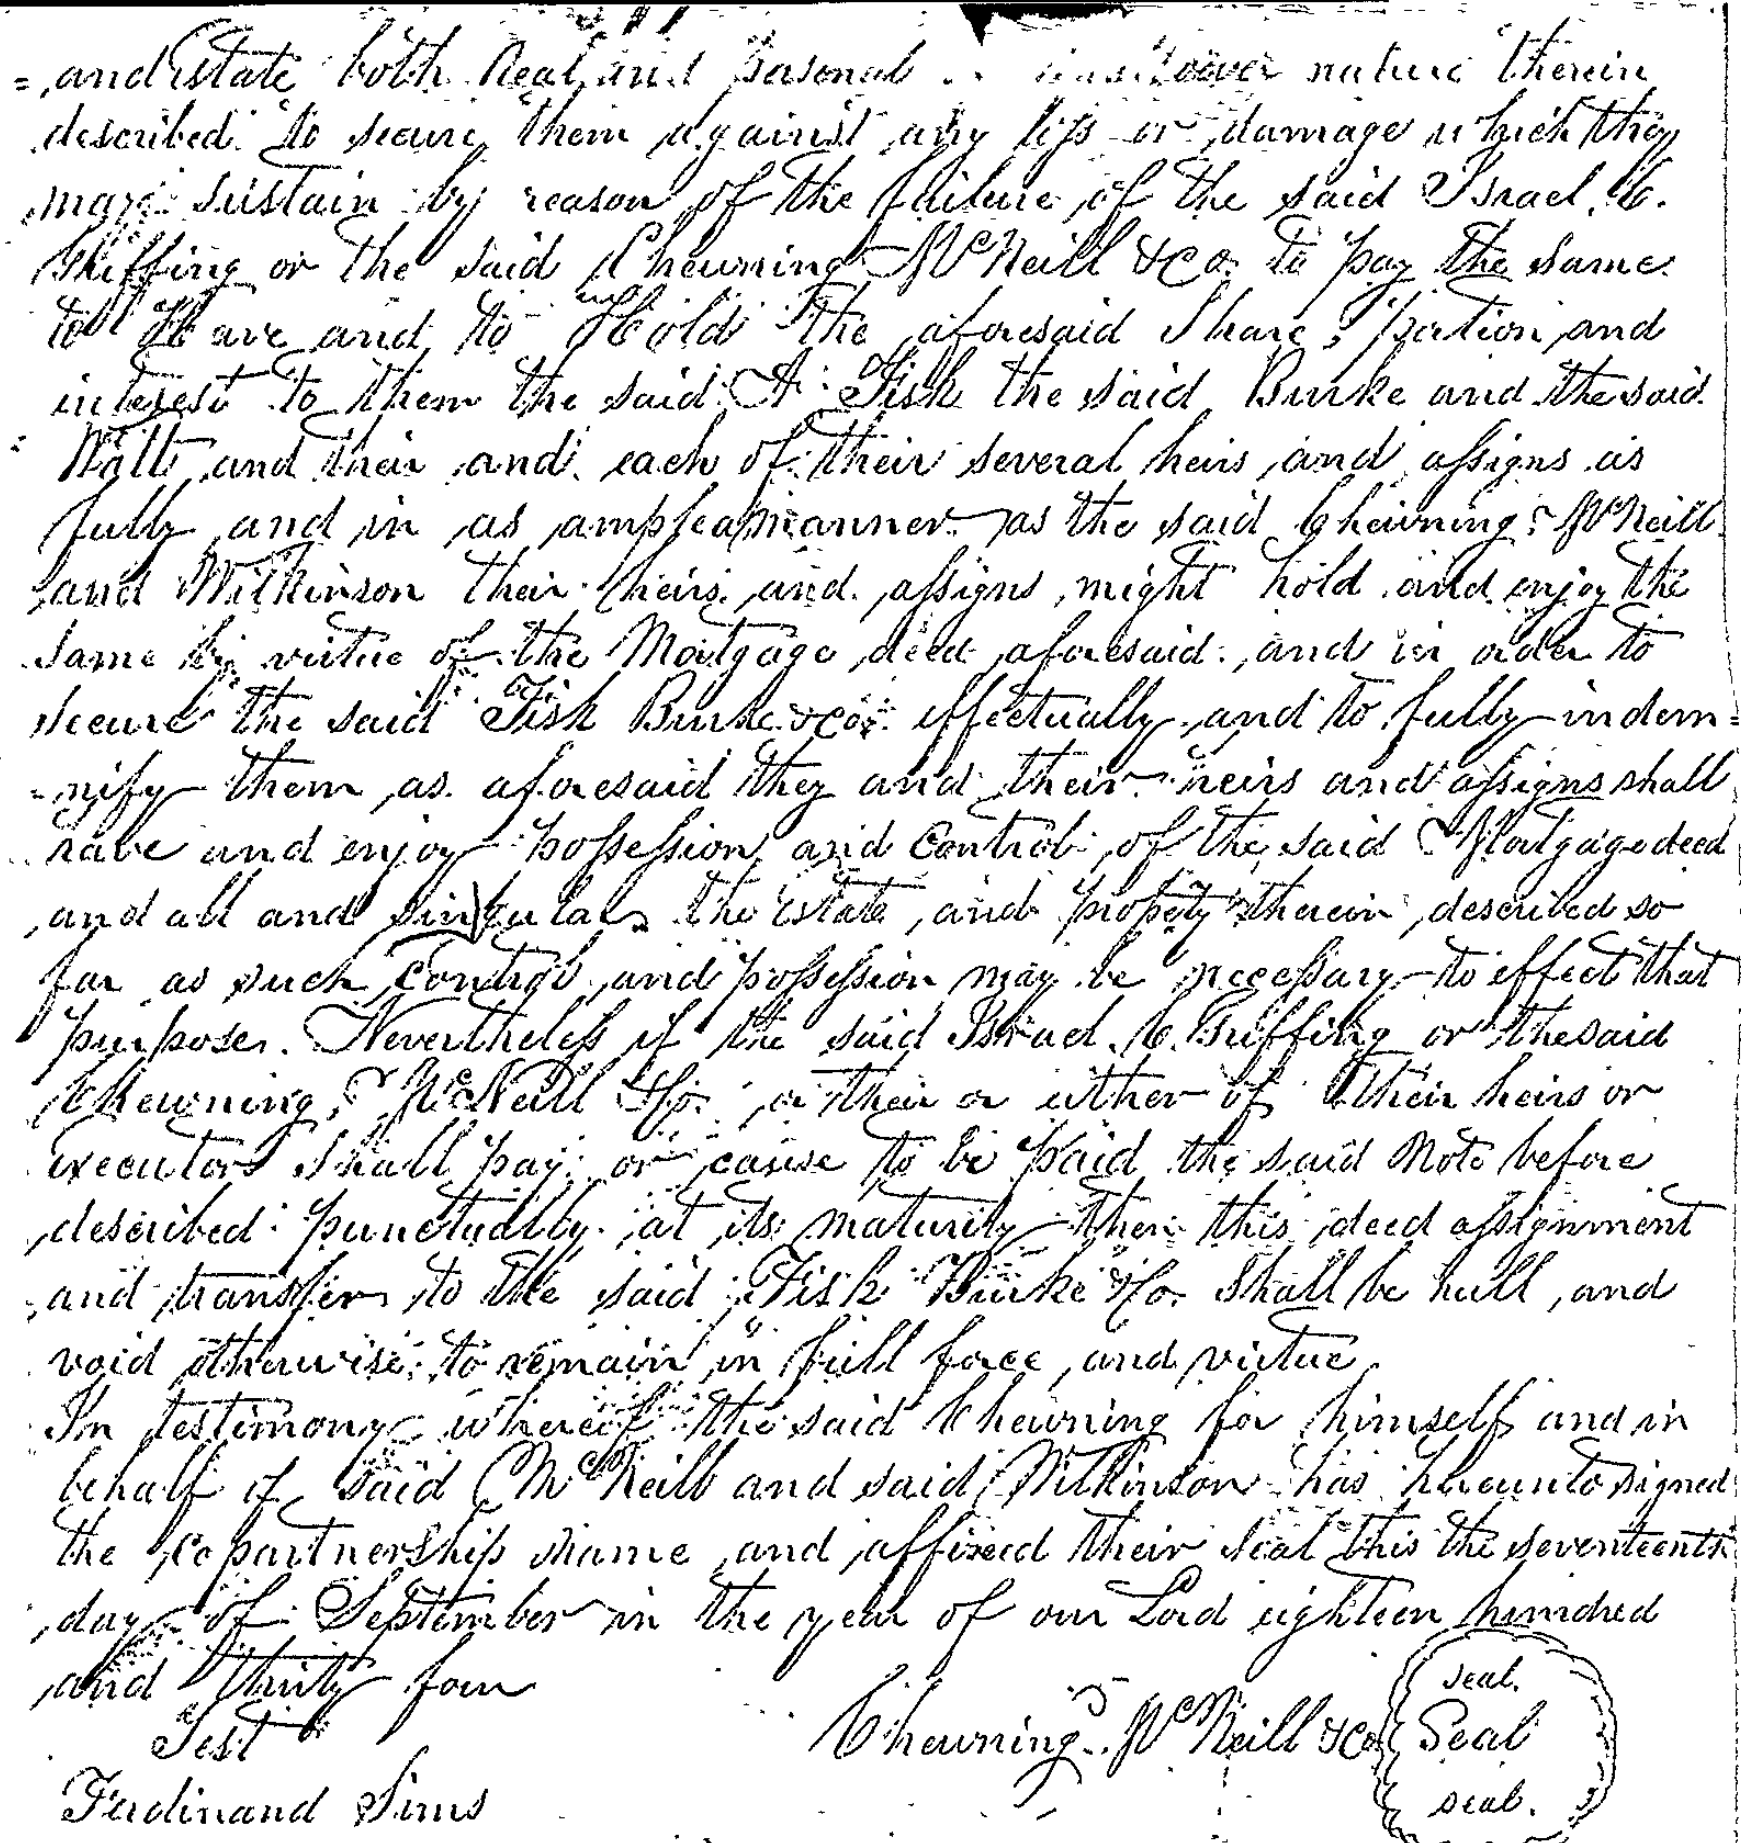 and Estate both Real and Pasonal nature therein
described to secure them against any loss or damage which they
may sustain by reason of the failure of the said Israel. C.
Griffing or the said Chewning McNeill & Co. to pay the same
to Have and to Hold the aforesaid Share, portion and
interest to them the said A. Fisk the said Burke and the said
Watt and their and each of their several heirs and assigns as
fully and in as ample a manner as the said Chewning, McNeill
and Wilkinson their heirs and assigns might hold and enjoy the
same by virtue of the Mortgage deed aforesaid, and in order to
secure the said Fisk Burke & Co. effectually and to fully indem=
-nify them as aforesaid they and their heirs and assigns shall
have and enjoy possession and Control of the said Mortgage deed
and all and singular the Estate and propety therein described so
far as such Control and possession may be necessary to effect that
purpose. Nevertheless if the said Israel. C. Griffing or the said
Chewning, McNeill & Co. or their or either of their heirs or
executors Shall pay or cause to be paid the said Note before
described punctually at its maturity then this deed assignment
and transfer to the said Fisk Burke & Co. Shall be null and
void otherwise to remain in full force and virtue.
In testimony whereof the said Chewning for himself and in
behalf of said McNeill and said Wilkinson has hereunto signed
the Copartnership name and affixed their seal this the seventeenth
day of September in the year of our Lord eighteen hundred
and thirty four
Test
Chewning. McNeill & Co.
seal.
Seal
seal.
Ferdinand Sims